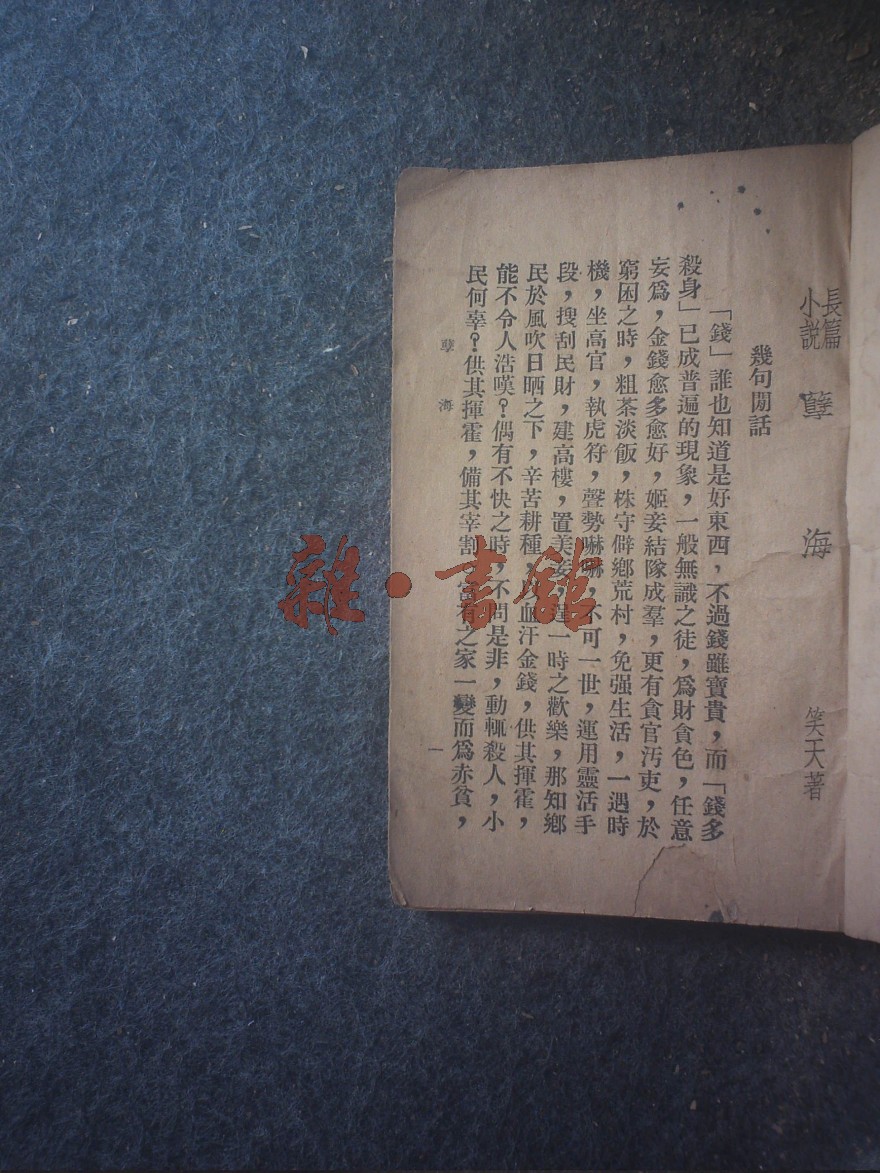 長篇
小説
孽海
笑天著
幾句閒話
「錢」誰也知道是好東西，不過錢雖寶貴，而「錢多
殺身」已成普遍的現象，一般無識之徒，爲財貪色，任意
妄爲，金錢愈多愈好，姬妾結隊成羣，更有貪官汚吏，於
窮困之時，粗茶淡飯，株守僻鄉荒村，免强生活，一遇時
機，坐高官，執虎符，聲勢嚇嚇，不可一世，運用靈活手
段，搜刮民財，建高樓，置美妾，逞一時之歡樂，那知鄉
民於風吹日晒之下，辛苦耕種，血汗金錢，供其揮霍，
能不令人浩嘆？偶有不快之時，不問是非，動輒殺人，小
民何辜？供其揮霍，備其宰割，富有之家一變而爲赤貧，
孽海
一
雜·書館